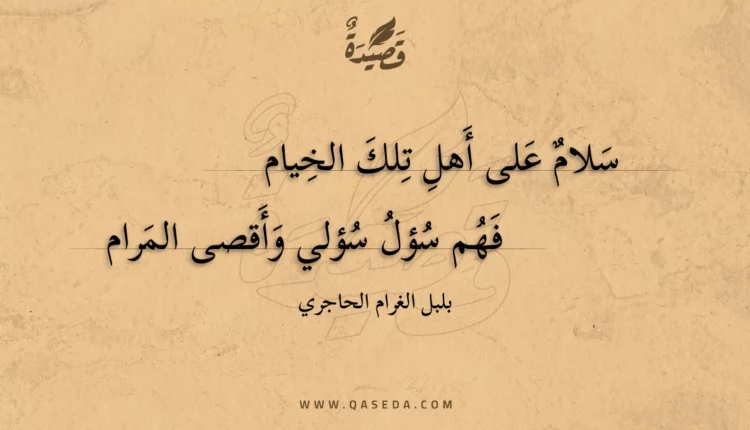 قَصِيدَةٌ
سَلامٌ عَلى أَهلِ تِلكَ الخِيام
فَهُم سُؤلُ سُؤلي وَأَقصى المَرام
بلبل الغرام الحاجري
WWW.QASEDA.COM